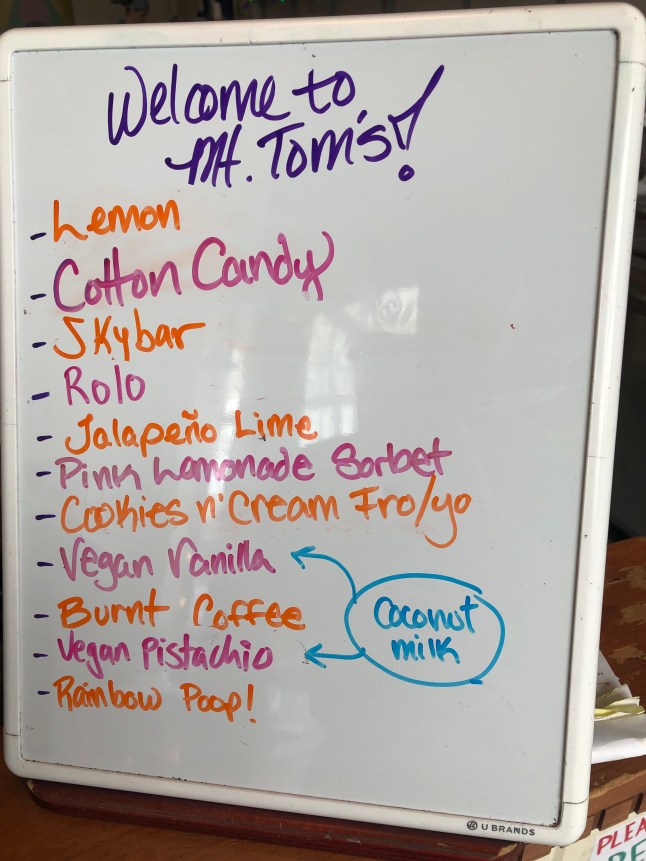 Welcome to
Mt. Tom's!
- Lemon
- Cotton Candy
- Skybar
- Rolo
- Jalapeño Lime
- Pink Lemonade Sorbet
- Cookies n' Cream Fro/yo
- Vegan Vanilla
- Burnt Coffee
- Vegan Pistachio
- Rainbow Poop!
Coconut
milk
U BRANDS